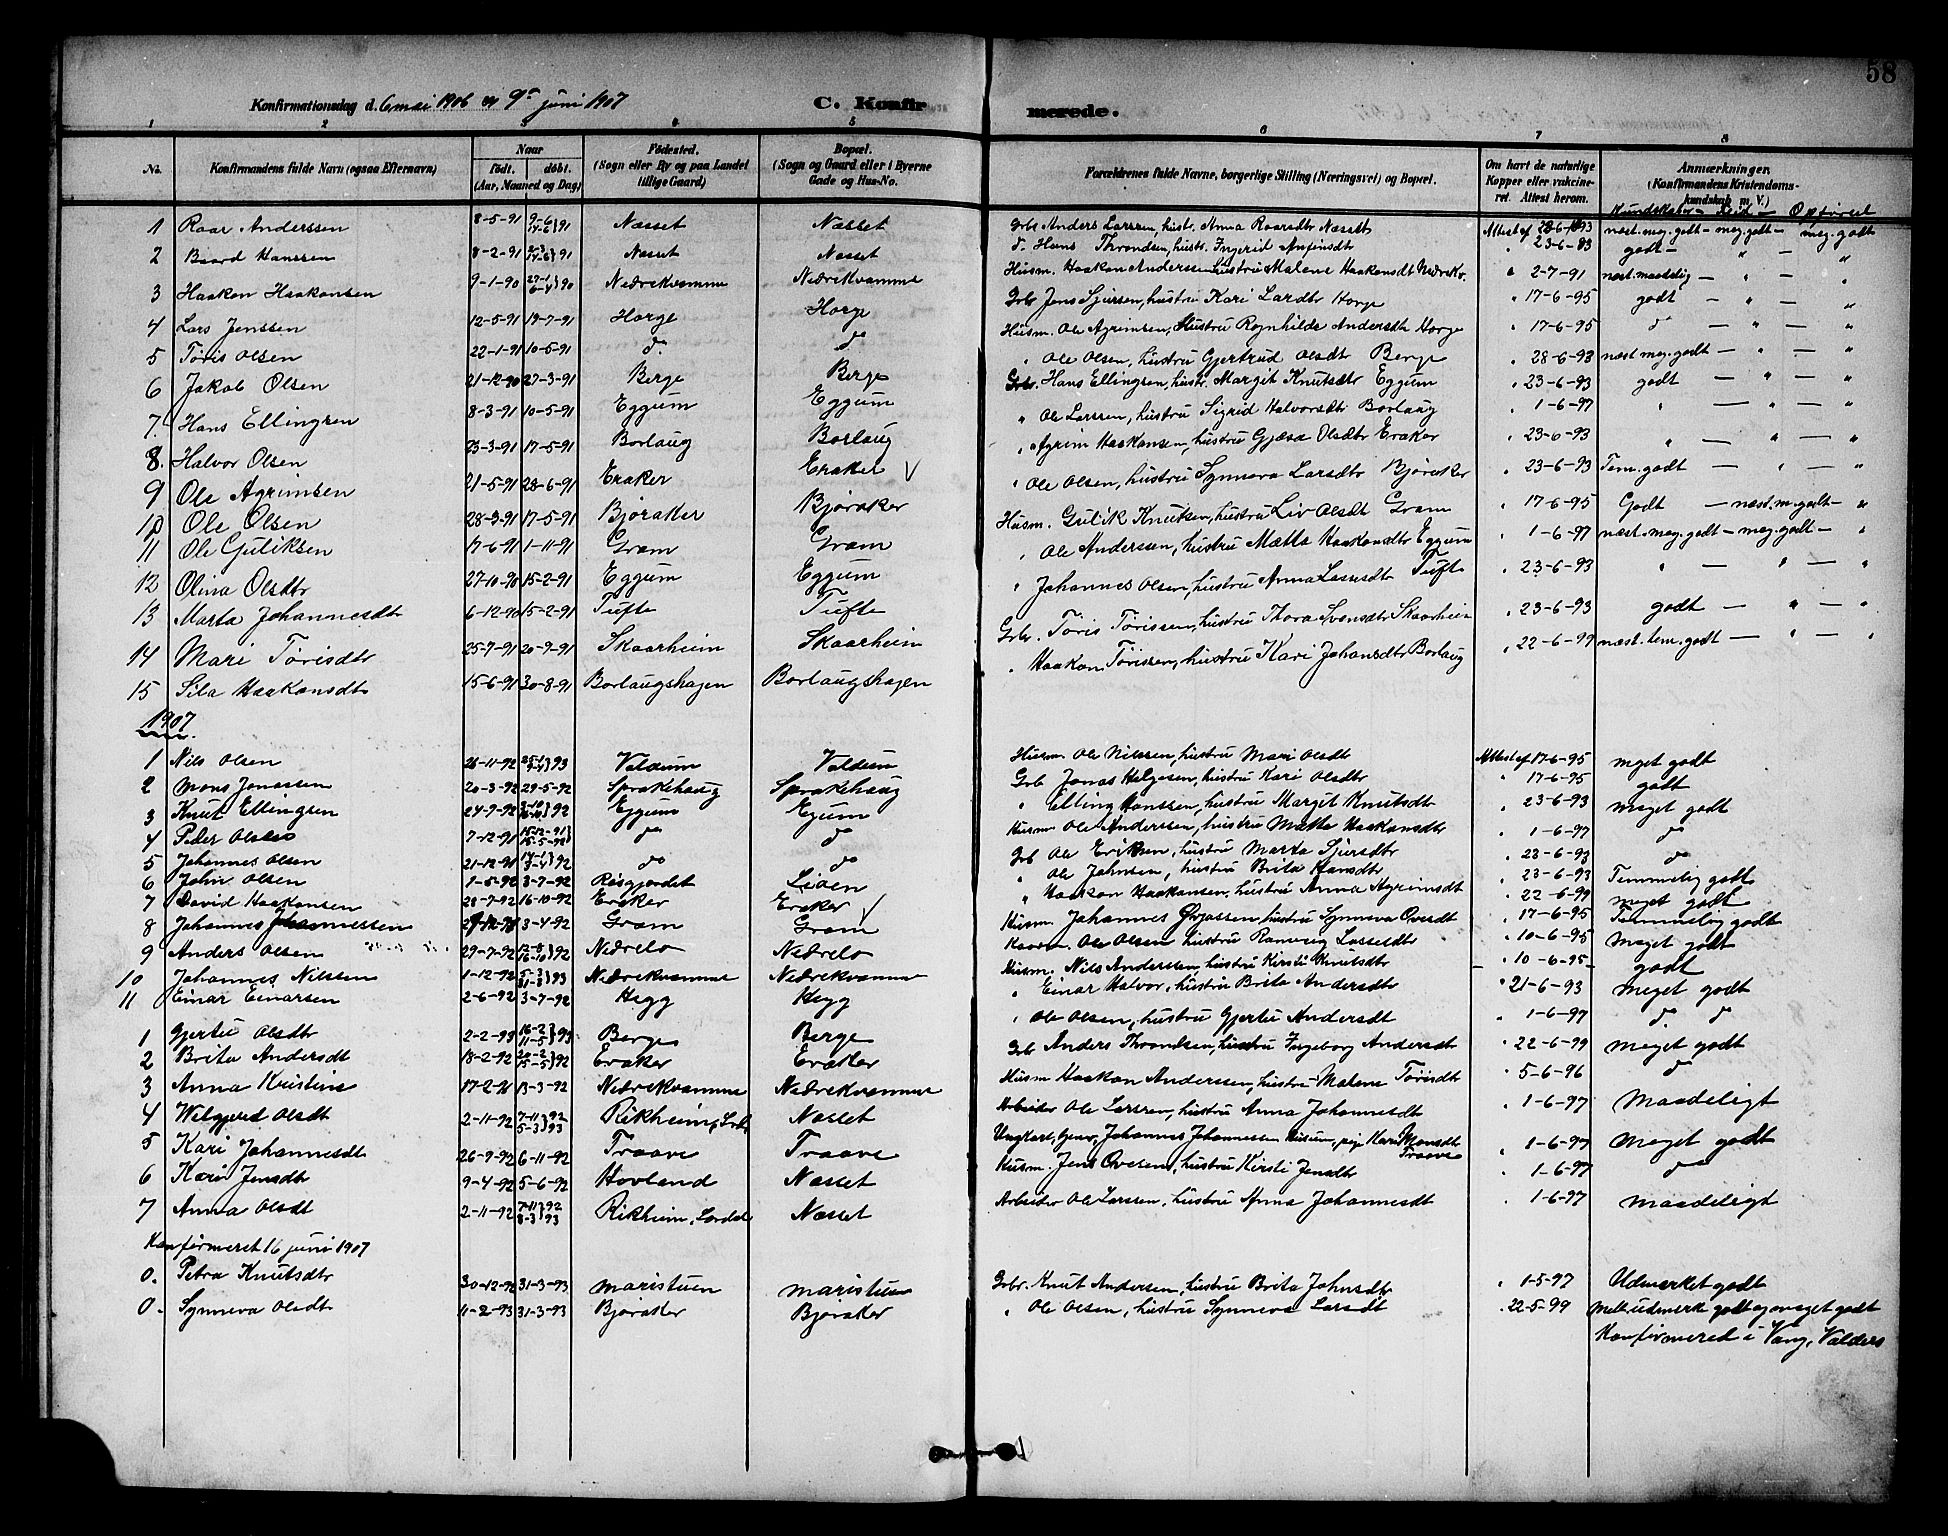 58
Konfirmationsdag d. 6 mai 1906 og 9de juni 1907 C. Konfirmerede.
1 2 3 4 5 6 7 8
No. Konfirmandens fulde Navn (ogsaa Efternavn) Naar født. døbt. (Aar, Maaned og Dag) Fødested. (Sogn eller By og paa Landet tillige Gaard) Bopæl. (Sogn og Gaard eller i Byerne Gade og Hus-No. Forældrenes fulde Navne, borgerlige Stilling (Næringsvei) og Bopæl. Om havt de naturlige Kopper eller vakcineret. Attest herom. Anmærkninger. (Konfirmandens Kristendomskundskab m. V.)
Kundskaber - Flid - Opførsel
1 Roar Anderssen 8-5-91 9-6 14-6 } 91 Næsset Næsset Grbr Anders Larssen, hustr. Anna Roarsdtr Næsset Attest af 28-6-93 næst. meg. godt - meg. godt - meg. godt
2 Baard Hanssen 8-2-91 91 Næsset Næsset do Hans Throndsen, hustr. Ingerid Anfinsdt " 23-6-83 godt - " - "
3 Haakon Haakonsen 9-1-90 27-1 6-4 } 90 Nedrekvamme Nedrekvamme Husm. Haakon Anderssen, hustru Malene Haakonsdt Nedrekv. " 2-7-91 næst. maadelig - " - "
4 Lars Jenssen 12-5-91 19-7-91 Horge Horge Grbr Jens Sjursen, hustru Kari Larsdtr Horge " 17-6-95 godt - " - "
5 Tøris Olsen 22-1-91 10-5-91 do do Husm. Ole Agrimsen, Hustru Ragnhilde Andersdtr Horge " 17-6-95 do - " - "
6 Jakob Olsen 21-12-90 27-3-91 Berge Berge " Ole Olsen, hustru Gjertrud Olsdt Berge " 28-6-93 næst meg. godt - " - "
7. Hans Ellingsen 8-3-91 10-5-91 Eggum Eggum Grbr. Hans Ellingsen, hustr. Margit Knutsdtr Eggum " 23-6-93 godt - " - "
8. Halvor Olsen 23-3-91 17-5-91 Borlaug Borlaug " Ole Larssen, hustru Sigrid Halvorsdt Borlaug " 1-6-97 " - " - "
9 Ole Agrimsen 21-5-91 28-6-91 Eraker Eraker √ " Agrim Haakonsen, hustru Gjøsa Olsdtr Eraker " 23-6-93 " - " - "
10 Ole Olsen 28-3-91 17-5-91 Bjøraker Bjøraker " Ole Olsen, hustru Synneva Larsdtr Bjøraker " 23-6-93 Tem. godt - " - "
11 Ole Guliksen 17-6-91 1-11-91 Gram Gram Husm. Gulik Knutsen, hustru Liv Olsdt Gram " 17-6-95 Godt - næst. m. godt - "
12 Olina Olsdtr 27-10-90 15-2-91 Eggum Eggum " Ole Anderssen, hustru Mætta Haakonsdtr Eggum " 1-6-97 næst. meg. godt - meg. godt - "
13 Marta Johannesdtr 6-12-90 15-2-91 Tufte Tufte " Johannes Olsen, hustru Anna Larsdtr Tufte " 23-6-93 " - " - "
14 Mari Tørisdtr 25-7-91 20-9-91 Skaarheim Skaarheim Grbr. Tøris Tørissen, hustru Thora Svensdtr Skaarheim " 23-6-93 godt - " - "
15 Sila Haakonsdt 15-6-91 30-8-91 Borlaugshagen Borlaugshagen " Haakon Tørissen, hustru Kari Johansdtr Borlaug " 22-6-99 næst. tem. godt - " - "
1907
1 Nils Olsen 26-11-92 25-1 9-4 } 93 Voldum Voldum Husm. Ole Nilssen, hustru Mari Olsdt Attest af 17-6-95 meget godt
2 Mons Jonassen 20-3-92 29-5-92 Sprakehaug Sprakehaug Grb Jonas Helgesen, hustru Kari Olsdtr " 17-6-95 godt
3 Knut Ellingsen 24-9-92 2-10 16-10 } 92 Eggum Egum " Elling Hanssen, hustru Margit Knutsdtr " 23-6-93 meget godt
4 Peder Olsen 7-12-91 15-12-91 15-5-92 } do do Husm Ole Anderssen, hustru Mætta Haakonsdtr " 1-6-97 do
5 Johannes Olsen 21-12-91 17-1 3-4 } 92 do do Grb Ole Eriksen, hustru Marta Sjursdtr " 23-6-93 do
6 John Olsen 1-5-92 3-7-92 Røsgjordet Lien " Ole Johnsen, hustru Brita Hansdtr " 23-6-93 Temmelig godt
7 David Haakonsen 28-7-92 16-10-92 Eraker Eraker √ " Haakon Haakonsen, hustru Anna Agrimsdt " 22-6-99 meget godt
8 Johannes Johannessen 3-4-92 Gram Gram Husm. Johannes Øvjassen, hustru Synneva Ovesdt " 17-6-95 Temmelig godt
9 Anders Olsen 29-7-92 12-8 16-10 } 92 Nedrelo Nedrelo Ole Olsen hustru Ranveig Lassesdtr " 10-6-95 Meget godt
10 Johannes Nilssen 1-12-92 5-3 31-3 } 93 Nedrekvamme Nedrekvamme Husm. Nils Anderssen, hustru Kirsti Knutsdtr - " 10-6-95 - godt
11 Einar Einarsen 2-6-92 3-7-92 Hegg Hegg " Einar Halvor, hustru Brita Andersdt " 21-6-93 meget godt
1 Gjertu Olsdtr 2-2-93 16-2 11-5 } 93 Berge Berge " Ole Olsen, hustru Gjertu Andersdt " 1-6-97 do do
2 Brita Andersdt 18-2-92 20-2 15-5 } 92 Eraker Eraker Grb Anders Throndsen, hustru Ingeborg Andersdt " 22-6-99 meget godt
3 Anna Kristine 17-2-91 13-3-92 Nedrekvamme Nedrekvamme Husm Haakon Anderssen, hustru Malene Tørisdtr " 5-6-96 do
4 Welgjerd Olsdt 2-11-92 7-11 5-3 } 92 93 Rikheim, Lrdl. Næsset Arbeider Ole Larssen, hustru Anna Johannesdt " 1-6-97 Maadeligt
5 Kari Johannesdt 26-9-92 6-11-92 Traave Traave Ungkarl, Gaav. Johannes Johannessen Husum, pige Kari Monsdtr Traave " 1-6-97 meget godt
6 Kari Jensdtr 9-4-92 5-6-92 Hovland Næsset Husm. Jens Ovesen, hustru Kirsti Jensdtr " 1-6-97 do
7 Anna Olsdt 2-11-92 7-11 8-3 } 92 93 Rikheim, Lærdal Næsset Arbeider Ole Larssen, hustru Anna Johannesdt " 1-6-97 maadeligt
Konfirmeret 16 juni 1907
0. Petra Knutsdtr 30-12-92 31-3-93 Maristuen Maristuen Grbr. Knut Andersen, hustru Brita Johnsdtr " 1-5-97 Udmerket godt
0. Synneva Olsdtr 11-2-93 31-3-93 Bjøraker Bjøraker " Ole Olsen, hustru Synneva Larsdt " 22-5-99 Mell. udmerk godt og meget godt
Konfirmered i Vang, Valders